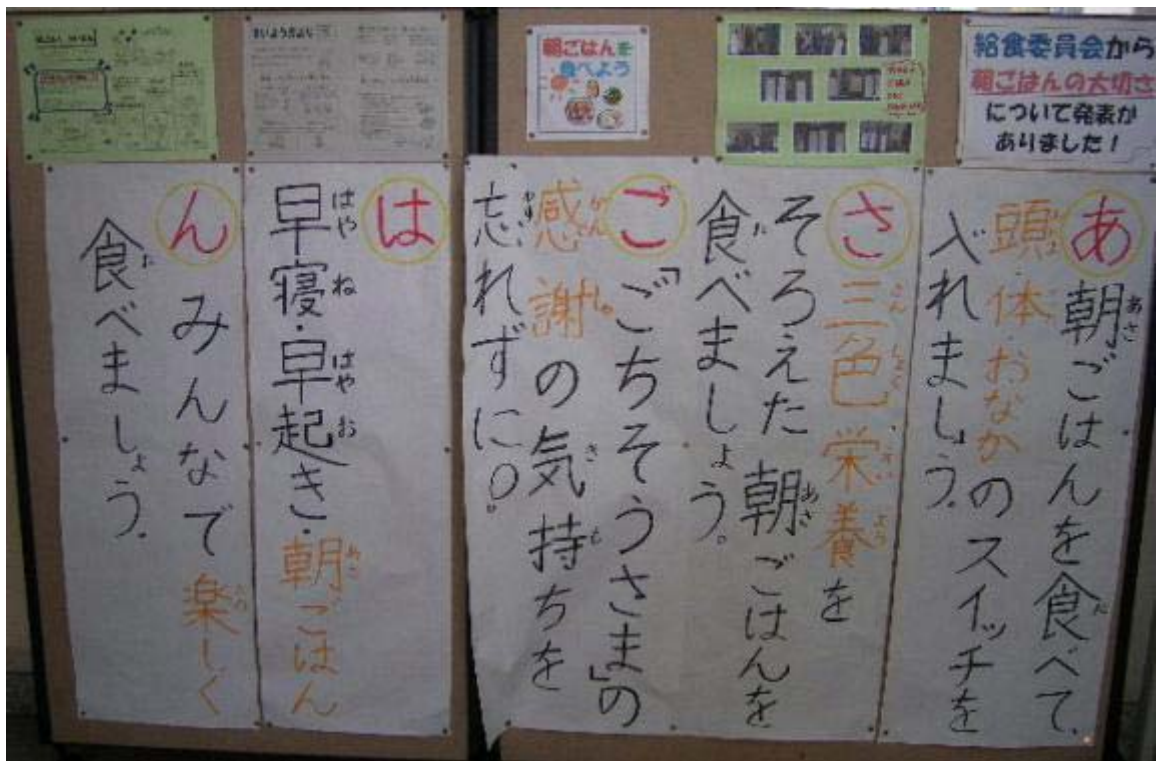 給食委員会から
朝ごはんの大切さ
について発表が
ありました！
朝ごはんを
食べよう
あ 朝ごはんを食べて、
頭・体・おなかのスイッチを
入れましょう。
さ 三色栄養を
そろえた朝ごはんを
食べましょう。
ご 「ごちそうさま」の
感謝の気持ちを
忘れずに。
は
早寝・早起き・朝ごはん
ん みんなで楽しく
食べましょう。